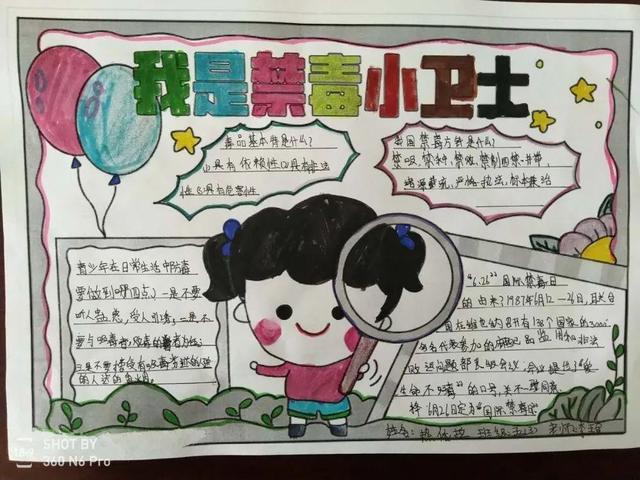 我是禁毒小卫士
毒品基本特是什么？
(1)具有依赖性(2)具有非法
性(3)具有危害性
我国禁毒方针是什么？
禁吸，禁种，禁贩，禁制四禁并举，
堵源截流，严格执法，标本兼治
青少年在日常生活中防毒
要做到哪四点？一是不要
听人，受人引诱，二是不
要与吸毒
三是不要
的人
"6.26"国际禁毒日
的由来？1987年6月12—26日，联合
国在维也纳召开有138个国家的3000
名代表参加的
问题部长级会议，会议提出"爱
生命不吸毒"的口号
将6月26日定为"国际禁毒日
姓名： 班级
SHOT BY
360 N6 Pro